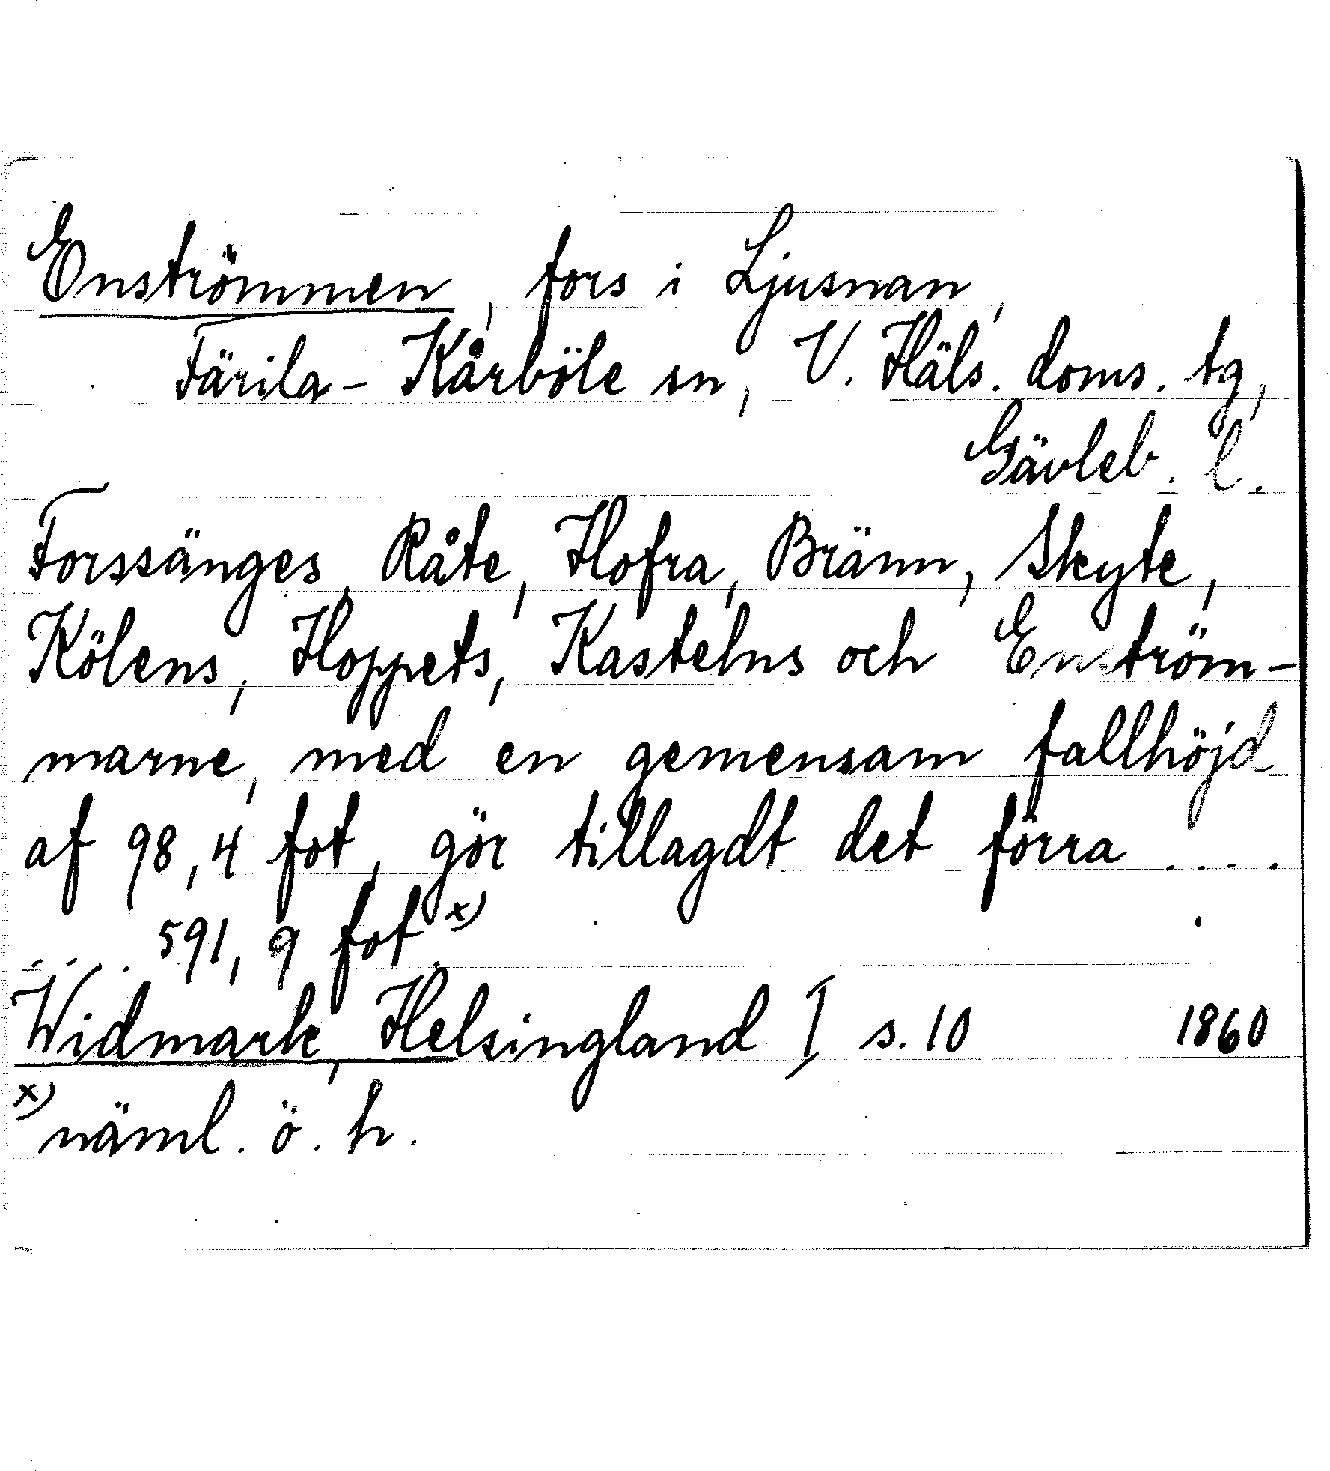 Enströmmen, fors i Ljusnan,
Färila-Kårböle sn, V. Häls. doms. tg,
Gävleb. l.
Forssänges, Råte, Hofra, Bränn, Skyte,
Kölens, Hoppets, Kastelns och Enström-
marne, med en gemensam fallhöjd
af 98,4 fot, gör tillagdt det förra ....
... 591,9 fot. x)
Widmark, Helsingland I s. 10 1860
x) näml. ö. h.